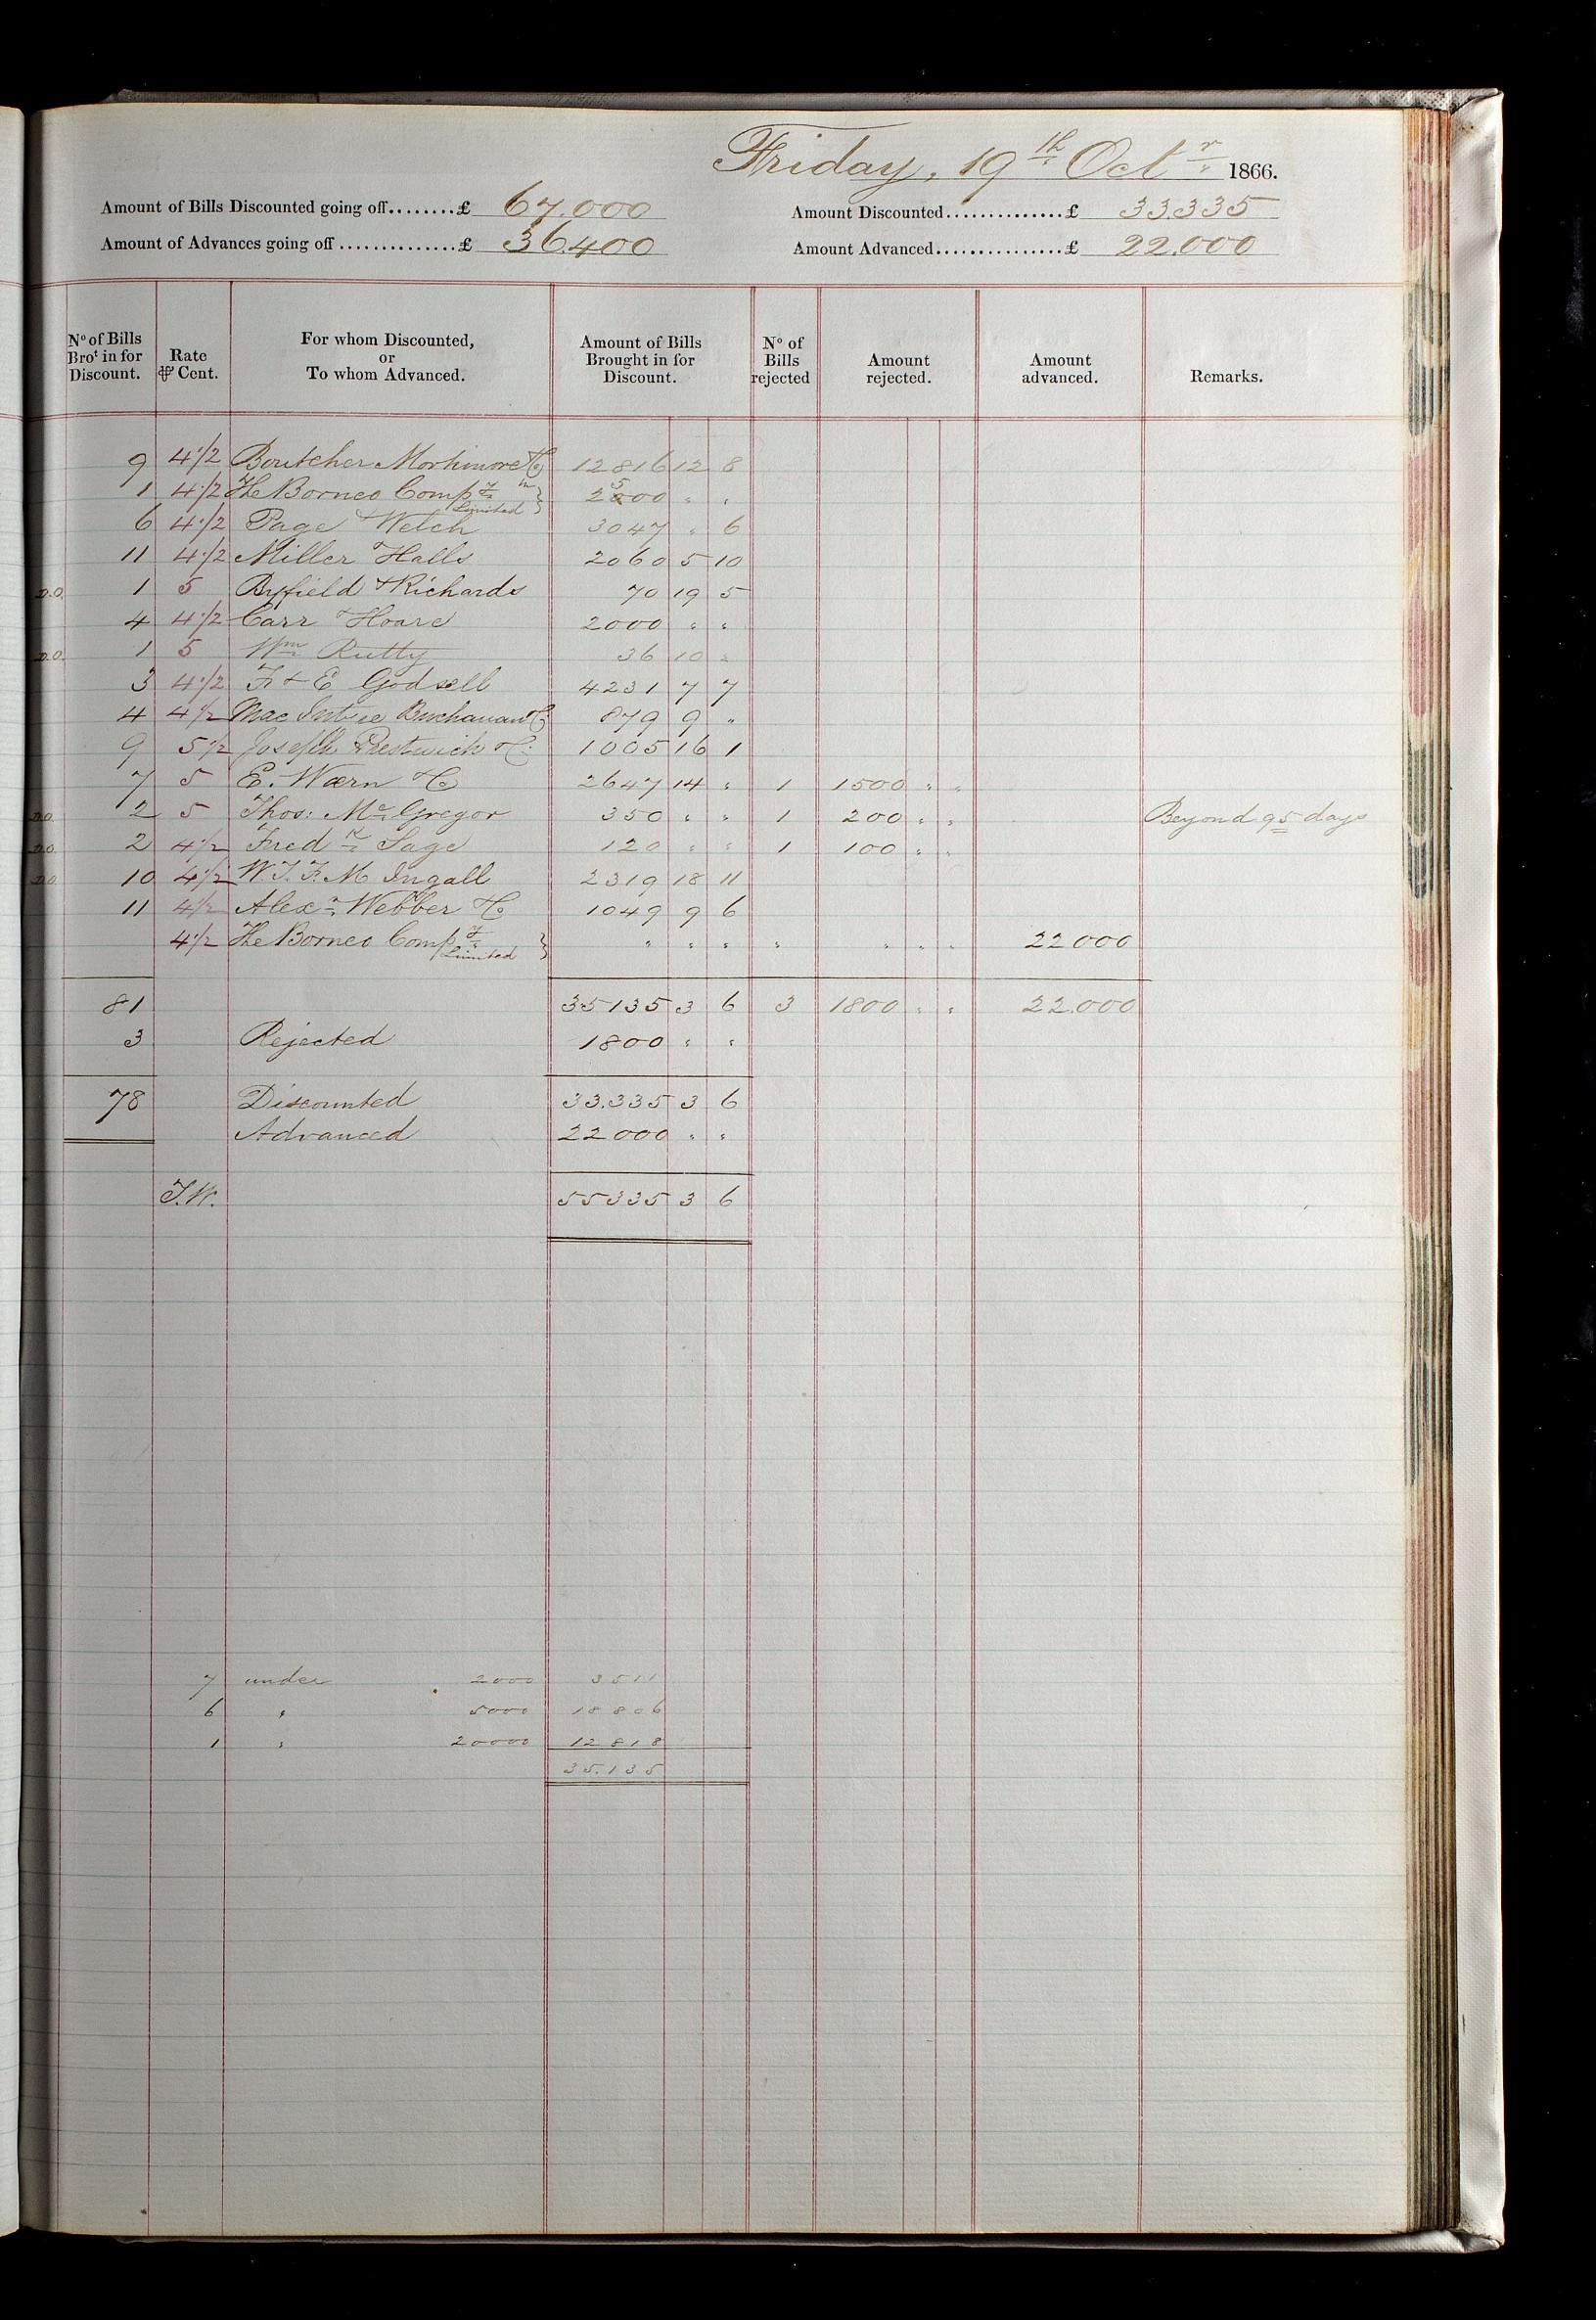 Friday, 19th Octr 1866.
Amount of Bills Discounted going off........£ 67.000 Amount Discounted..............£ 33335
Amount of Advances going off..............£ 36.400 Amount Advanced...............£ 22.000
No of Bills Brot in for Discount. Rate ⅌ Cent. For whom Discounted, or To whom Advanced. Amount of Bills Brought in for Discount. No of Bills rejected Amount rejected. Amount advanced. Remarks.
9 4 1/2 Boutcher Mortimore & Co 12816 12 8
1 4 1/2 The Borneo Compy Limited 2500 " "
6 4 1/2 Page & Welch 3047 " 6
11 4 1/2 Miller & Halls 2060 5 10
D.O. 1 5 Byfield & Richards 70 19 5
4 4 1/2 Carr & Hoare 2000 " "
D.O. 1 5 Wm Rutty 36 10 "
3 4 1/2 & E Godsell 4231 7 7
4 4 1/2 Mac Buchanan & Co 879 9 "
9 5 1/2 Joseph Prestwich & Co 1005 16 1
7 5 E. Wærn & Co 2647 14 " 1 1500 " "
D.O. 2 5 Thos: Mc Gregor 350 " " 1 200 " " Beyond 95 days
D.O. 2 4 1/2 Fredk Sage 120 " " 1 100 " "
D.O. 10 4 1/2 W. T. F. M Ingall 2319 18 11
11 4 1/2 Alexr Webber & Co 1049 9 6
4 1/2 The Borneo Compy Limited " " " " " " " 22000
81 35135 3 6 3 1800 " " 22.000
3 Rejected 1800 " "
78 Discounted 33.335 3 6
Advanced 22000 " "
T.W. 55335 3 6
7 under 2000 3511
6 " 5000 18806
1 " 20000 12818
35.135